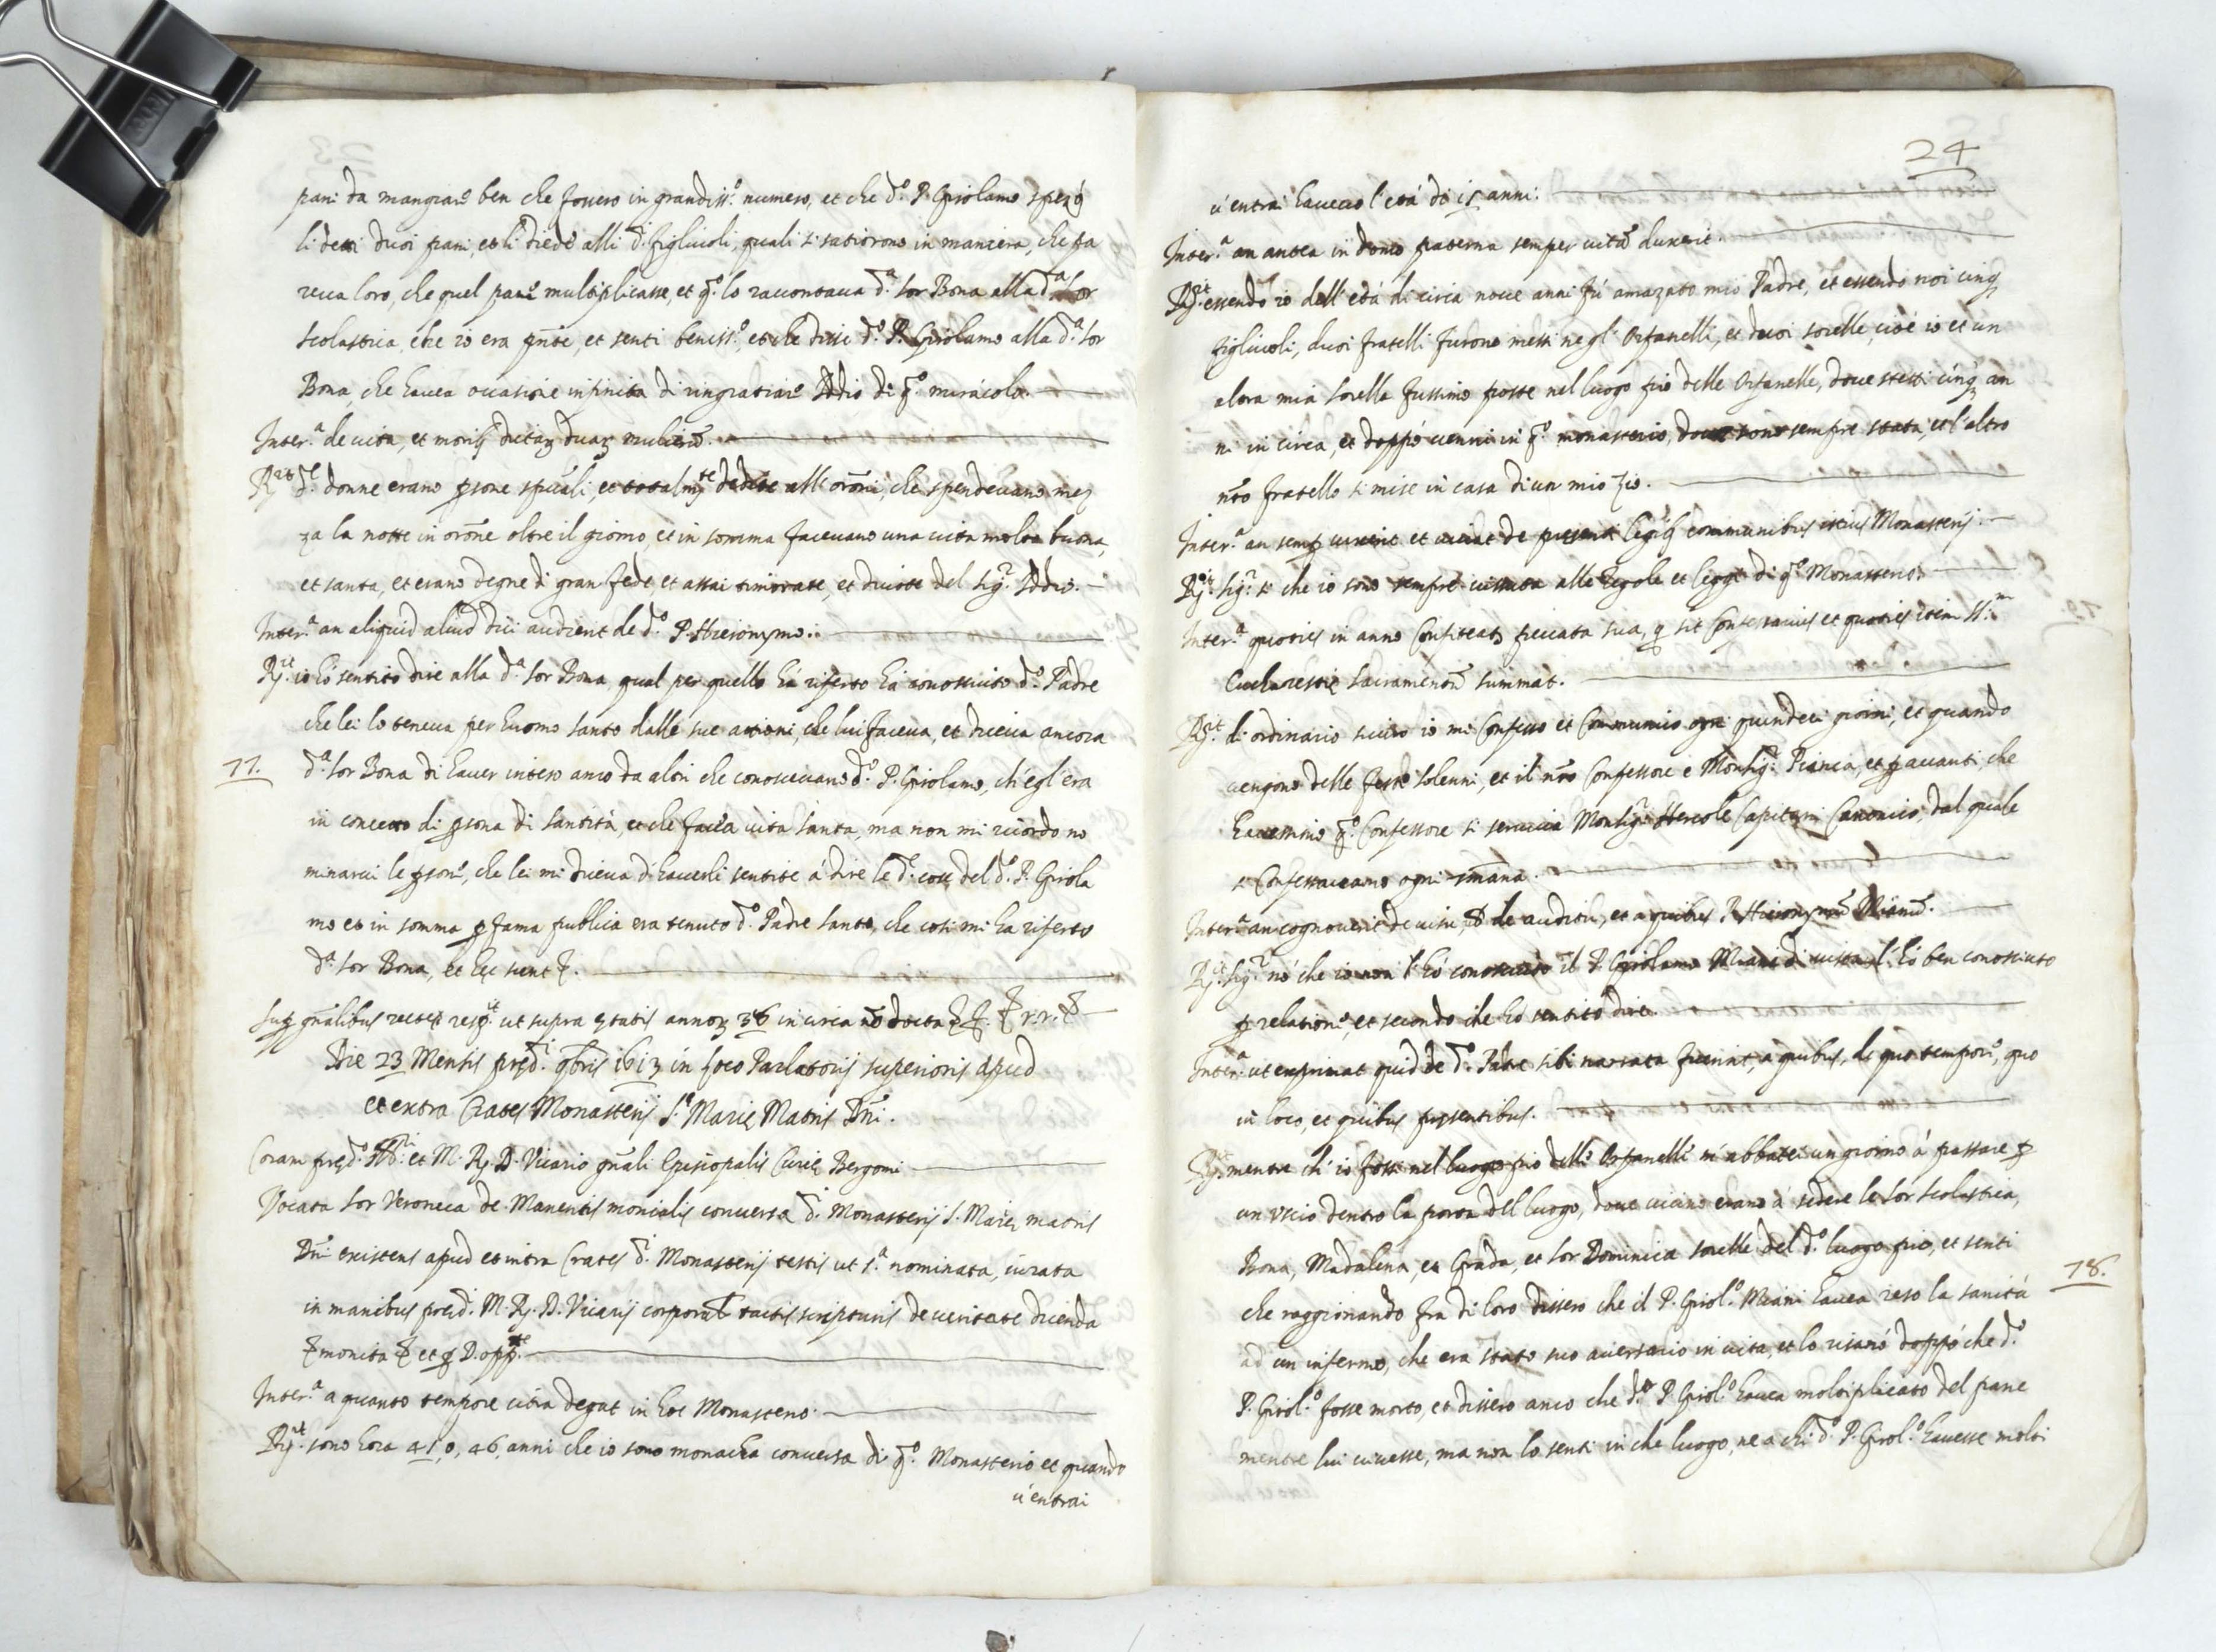 pani da mangiare ben che fossero in grandiss.º numero, et che d.º P. Girolamo spezò
li detti duoi pani, et li diede alli d.i figliuoli, quali si satiorono in maniera, che pa
reva loro, che quel pane multiplicasse, et q.º lo raccontava d.ª Sor Bona alla d.ª Sor
Scolastica che io era pnte, et senti beniss.º, et che dissi d.º P. Girolamo alla d.ª Sor
Bona che havea occasione infinita di ringratiare Iddio di q.º miracolo.
Inter.ª de vita, et moribꝫ dictaꝝ duaꝝ mulierū.
R.it d.e donne erano psone spūali, et totalmte dedite all'orōni, che spendevano mez
za la notte in orōne oltre il giorno, et in somma facevano una vita molto buona,
et santa, et erano degne di gran fede, et assai timorate, et divote del Sig.r Iddio.
Inter.ª an aliquid aliud dici audierit de d.º P. Hieronymo.
R.it io hò sentito dire alla d.ª Sor Bona, qual per quello hà riferto hà conosciuto d.º Padre
che lei lo teneva per huomo santo dalle sue attioni, che lui faceva, et diceva ancora
77. d.ª Sor Bona di haver inteso anco da altri che conoscevano d.º P. Girolamo, ch'egl'era
in concetto di psona di santità, et che facea vita santa, ma non mi ricordo no
minarvi le psone, che lei mi diceva d'haverli sentite à dire le d.e cose del d.º P. Girola
mo et in somma p fama publica era tenuto d.º Padre santo, che così mi ha riferto
d.ª Sor Bona, et hęc sunt &.
Supꝫ gnalibus recte resp.it ut supra ętatis annoꝝ 36 in circa
Die 23 Mensis pręd.i 9bris 1613 in loco Parlatorij superioris apud
et extra Crates Monasterij S.ę Marię Matris Dñi.
Coram pręd.º et M. R. D. Vicario gñali Episcopalis Curię Bergomi
Vocata Sor Veronica de Manentis monialis conversa d.i Monasterij S. Marię matris
Dñi existens apud et intra Crates d.i Monasterij testis ut s.ª nominata, iurata
in manibus pręd.i M. R. D. Vicarij corporalr tactis scripturis de veritate dicenda
& monita & et p D. opp.te
Inter.ª a quanto tempore citra degat in hoc Monasterio.
R.it sono hora 45, o, 46 anni che io sono monacha conversa di q.º Monasterio et quando
v'entrai
24
v'entrai havevo l'età di 15 anni:
Inter.ª an antea in domo paterna semper vitā duxerit.
R.it essendo io dell'età di circa nove anni fù amazato mio Padre, et essendo noi cinq
figliuoli, duoi fratelli furono messi negl'Orfanelli, et duoi sorelle, cioè io et un
altra mia sorella fussimo poste nel luogo pio delle Orfanelle, dove stetti cinq an
ni in circa, et doppò venni in q.º monasterio, dove sono sempre stata, et l'altro
nrō fratello si mise in casa di un mio zio.
Inter.ª an semp vixerit et vivat de presenti legibꝫ communibus istius Monasterij.
R.it Sig.r sì che io sono sempre vissuta alle Regole et leggi di q.º Monasterio.
Inter.ª quoties in anno Confiteatꝝ peccata sua, q sit Confessarius et quoties item SS.m
Eucharestię sacramentū summat.
R.it di ordinario sicuro io mi Confesso et Communico ogni quindeci giorni, et quando
vengono delle feste solenni, et il nrō Confessore e Monsig.r Pianca, et p avanti, che
havessimo q.º Confessore ci serviva Monsig.r Hercole Capitani Canonico, dal quale
si Confessavamo ogni smāna.
Inter.ª an cognoverit de visu, vel de auditu, et a quibus P. Hieronymū Mianū.
R.it Sig.r nò che io non l'hò conosciuto il P. Girolamo Miani di vista, l'hò ben conosciuto
p relatione, et secondo che hò sentito dire.
Inter.ª ut exprimat quid de d.º Padre sibi narrata fuerint, a quibus, de quo tempore, quo
in loco, et quibus pręsentibus.
R.it mentre ch'io fossi nel luogo pio delli Orfanelli m'abbatei un giorno à passare p
un uscio dentro la porta del luogo, dove vicino erano à sedere le Sor Scolastica,
Bona, Madalena, et Grada, et Sor Dominica sorelle del d.º luogo pio, et senti
78. che raggionando fra di loro dissero che il P. Girol.º Miani havea reso la sanità
ad un infermo, che era stato suo aversario in vita, et lo risanò doppò che d.º
P. Girol.º fosse morto, et dissero anco che d.º P. Girol.º havea moltiplicato del pane
mentre lui vivesse, ma non lo senti in che luogo, ne a chi d.º P. Girol.º havesse molti